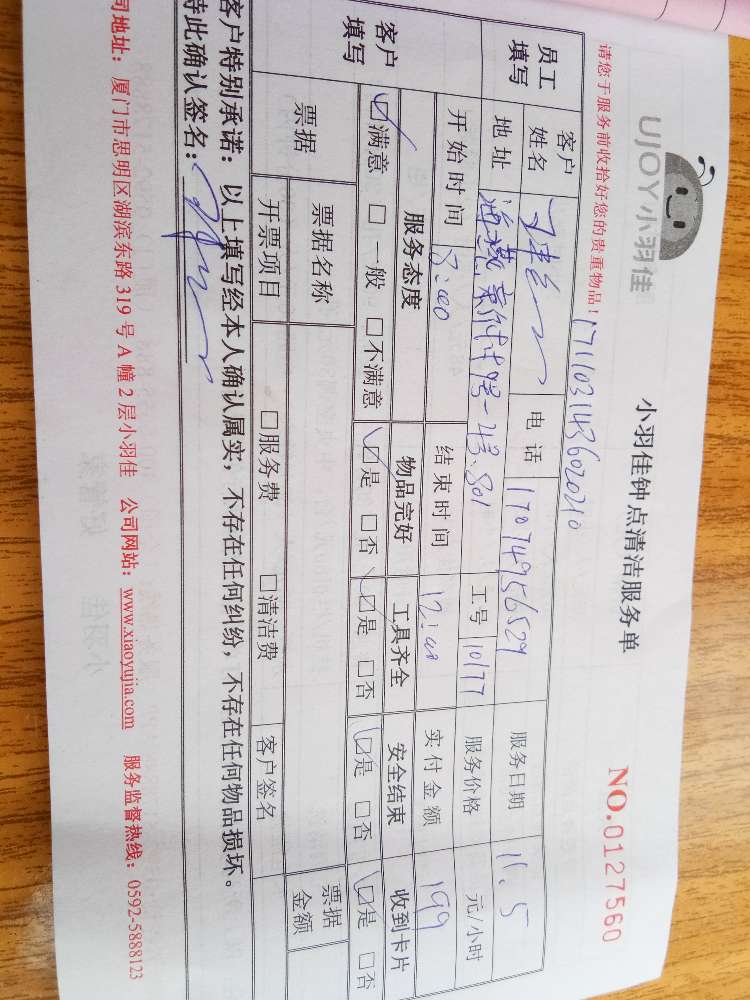 UJOY小羽佳
小羽佳钟点清洁服务单
NO.0127560
请您于服务前收拾好您的贵重物品！
1711031436020210
员工填写 客户姓名 电话 17074956529 服务日期 11.5
地址 801 工号 10177 服务价格 元/小时
开始时间 8:00 结束时间 12:00 实付金额 199
客户填写 服务态度 物品完好 工具齐全 安全结束 收到卡片
☑满意 □一般 □不满意 ☑是 □否 ☑是 □否 ☑是 □否 ☑是 □否
票据 票据名称 票据金额
开票项目 □服务费 □清洁费 客户签名
客户特别承诺：以上填写经本人确认属实，不存在任何纠纷，不存在任何物品损坏。
特此确认签名：
司地址：厦门市思明区湖滨东路 319 号 A 幢 2 层小羽佳 公司网站：www.xiaoyujia.com 服务监督热线：0592-5888123